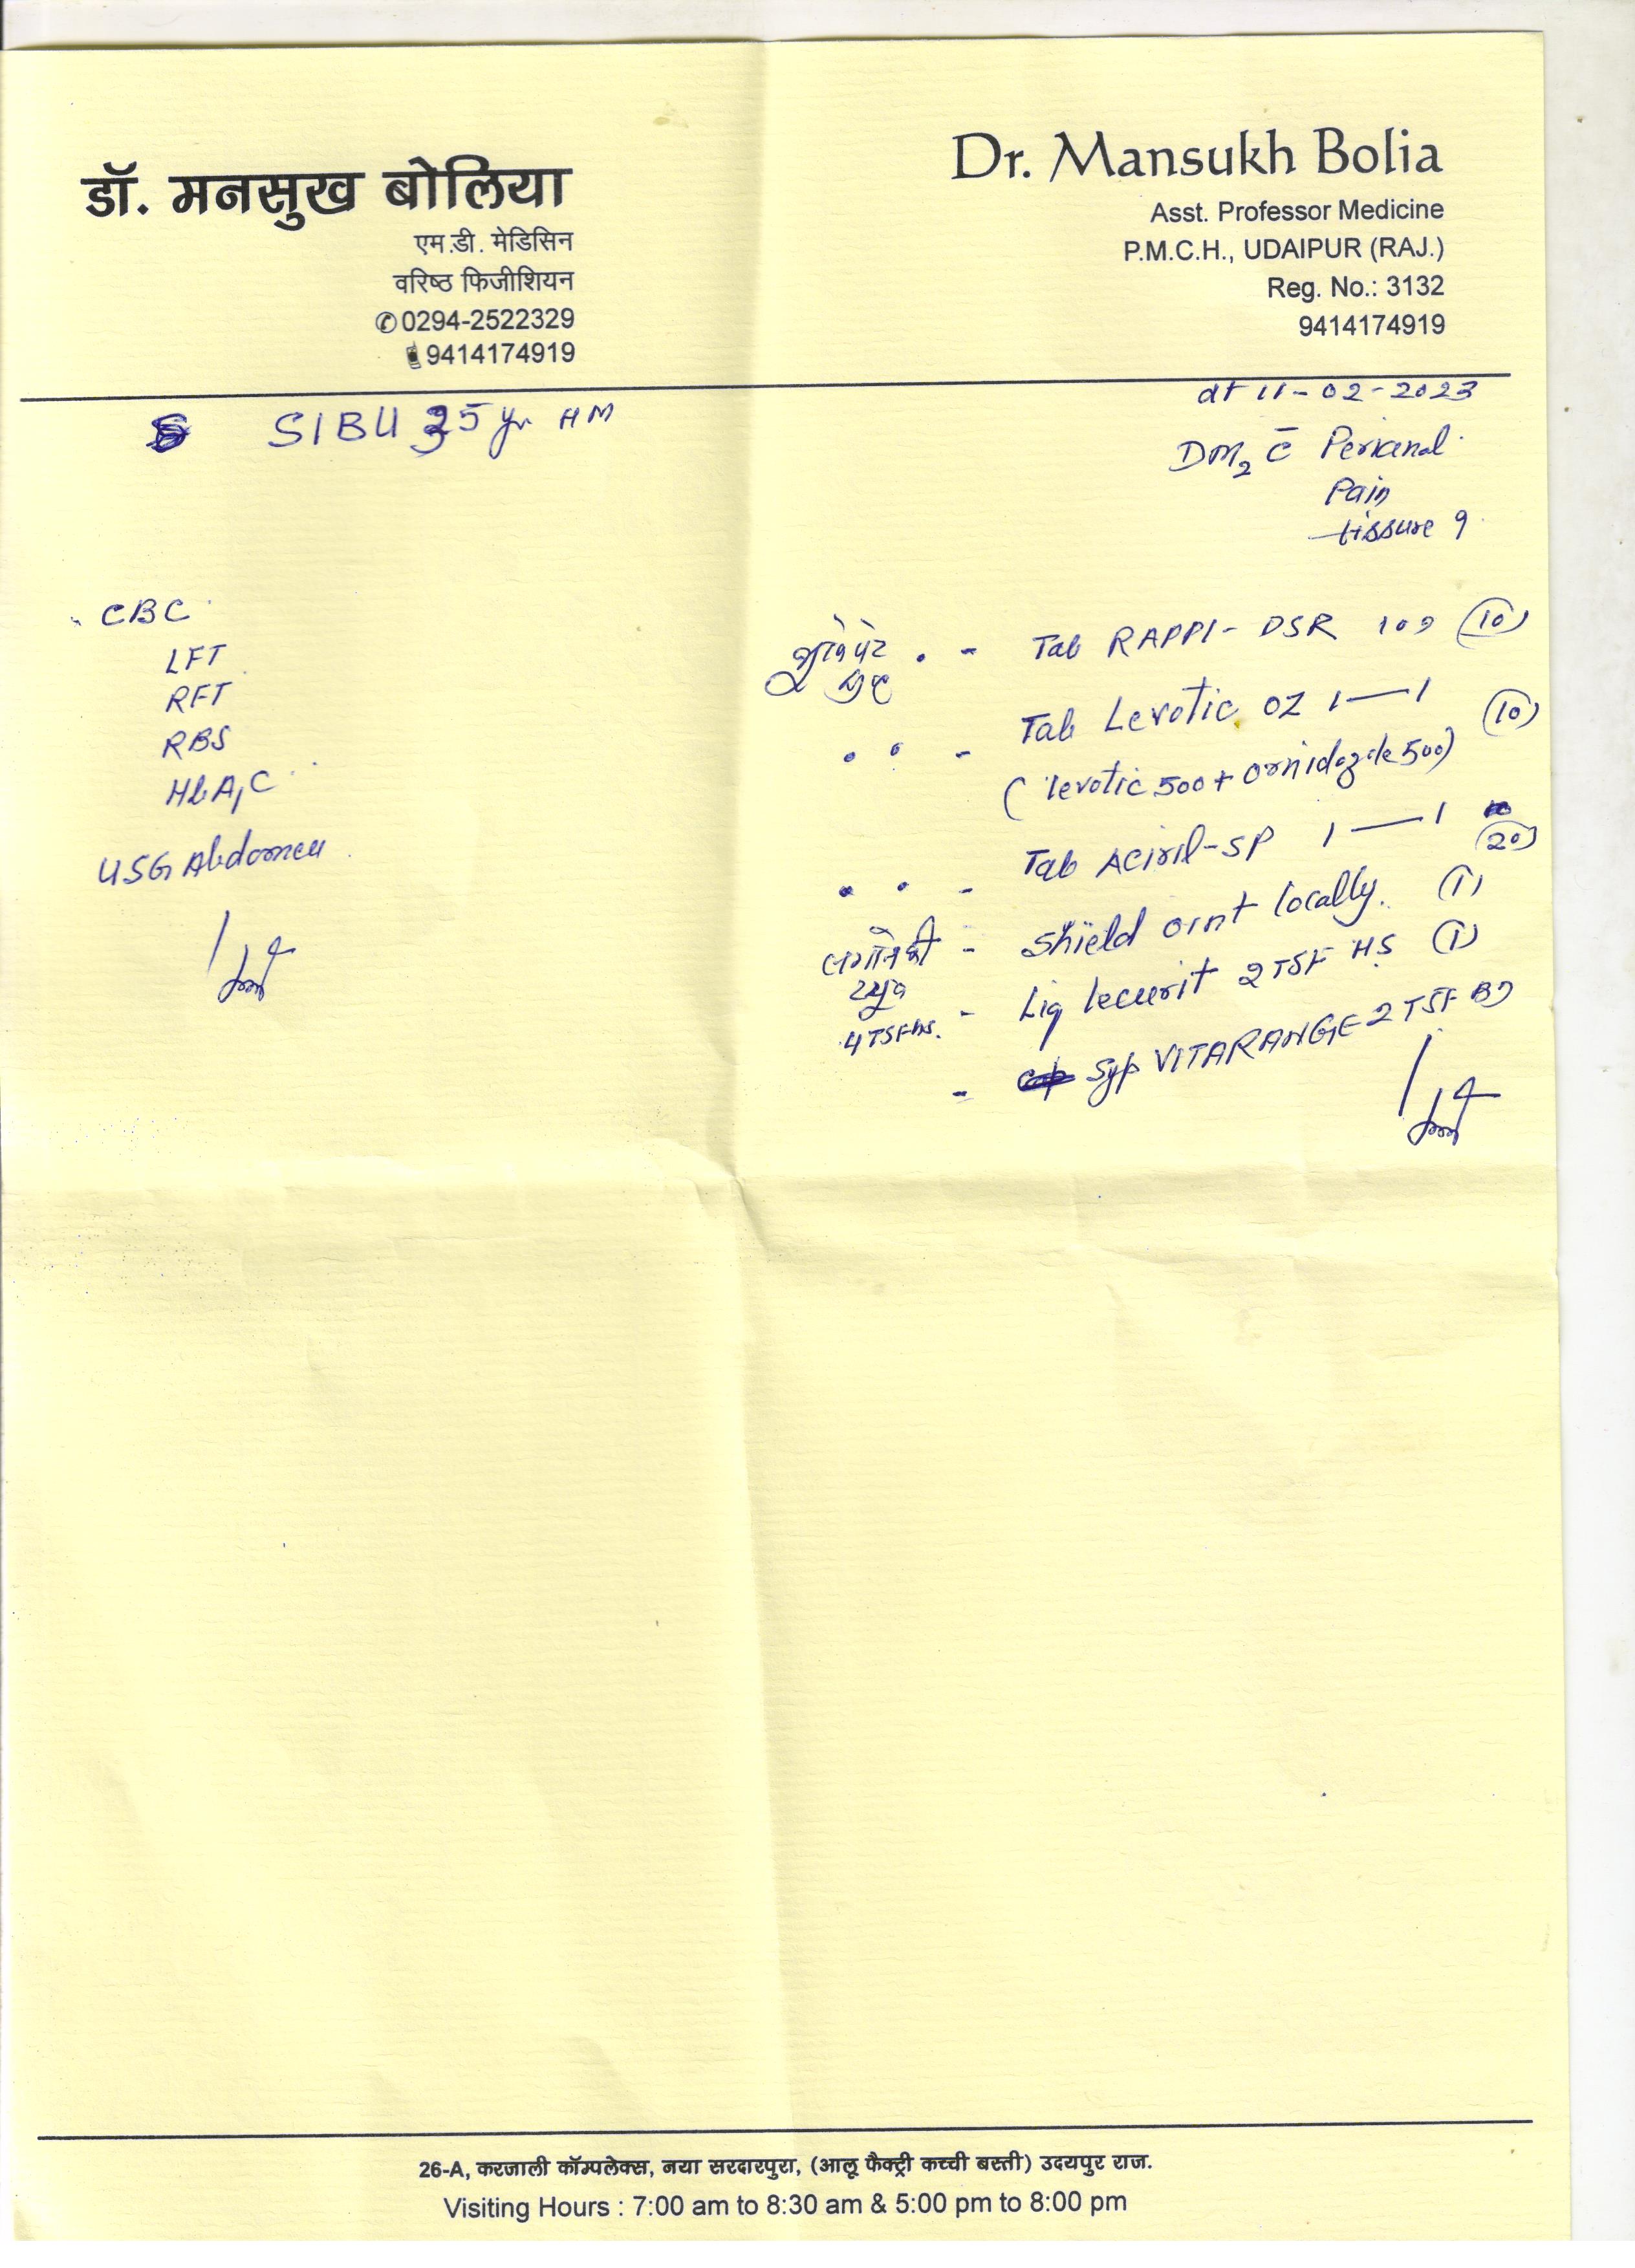 डॉ. मनसुख बोलिया
एम.डी. मेडिसिन
वरिष्ठ फिजीशियन
✆0294-2522329
9414174919
Dr. Mansukh Bolia
Asst. Professor Medicine
P.M.C.H., UDAIPUR (RAJ.)
Reg. No.: 3132
9414174919
dt 11-02-2023
SIBU 35 yr HM
DM2 c̄ Perianal
Pain
fissure ?
CBC
LFT
RFT
RBS
HbA1C
USG Abdomen
Tab RAPPI-DSR (10)
Tab Levotic OZ 1—1 (10)
(levotic 500 + ornidazole 500)
Tab Aciril-SP 1—1 (20)
लगाने की - Shield oint locally. (1)
ट्यूब
- Liq lecurit 2 TSF HS (1)
4 TSF hs.
- Syp VITARANGE 2 TSF BD
26-A, करजाली कॉम्पलेक्स, नया सरदारपुरा, (आलू फैक्ट्री कच्ची बस्ती) उदयपुर राज.
Visiting Hours : 7:00 am to 8:30 am & 5:00 pm to 8:00 pm